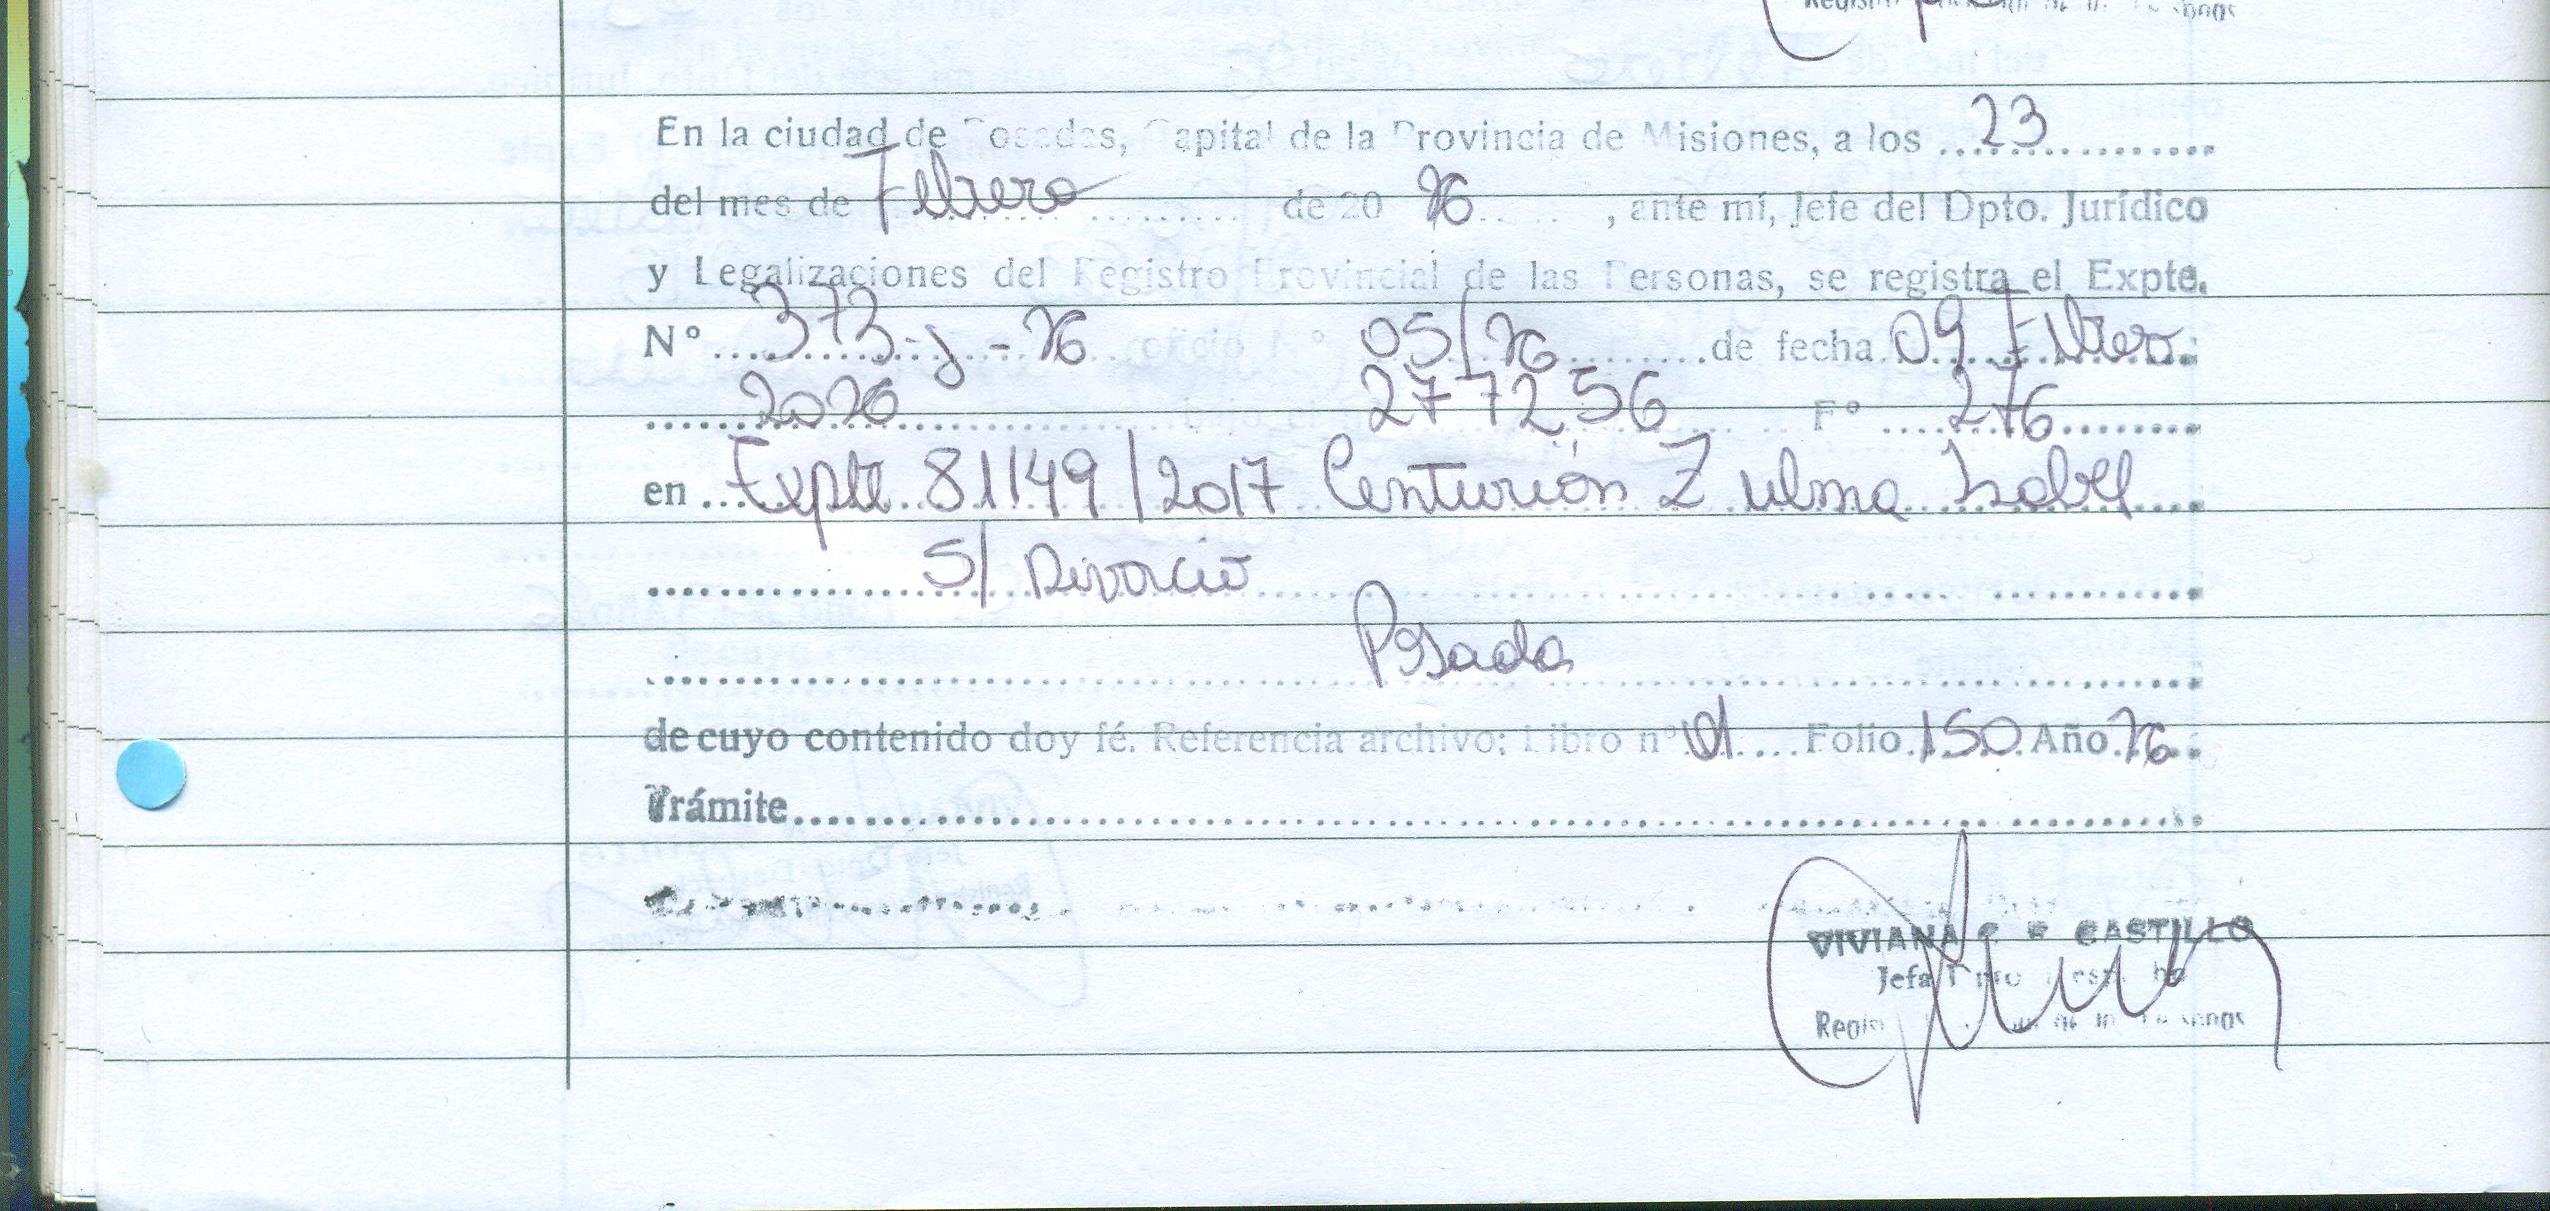 En la ciudad de Posadas, Capital de la Provincia de Misiones, a los 23
del mes de Febrero de 20 26, ante mí, Jefe del Dpto. Jurídico
y Legalizaciones del Registro Provincial de las Personas, se registra el Expte.
N° 373-J-26 05/26 de fecha 09 Febrero
2026 277256 F° 276
en Expte 81149/2017 Centurión Zulma Isabel
S/ Divorcio
Posadas
de cuyo contenido doy fé. Referencia archivo: Libro n° 01 Folio 150 Año 26
Trámite
VIVIANA CASTILLO
Jefa